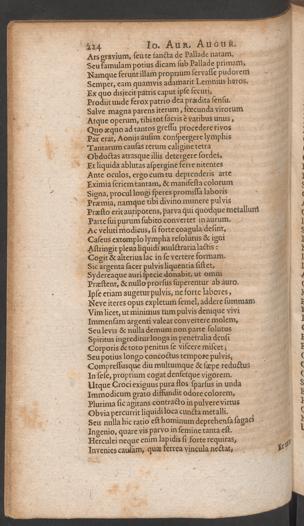 224 Io. Aur. Augur.
Ars gravium, seu te sancta de Pallade natam,
Seu famulam potius dicam sub Pallade primam,
Namque ferunt illam proprium servasse pudorem
Semper, eam quamvis adamarit Lemnius heros.
Ex quo disjecit patris caput ipse securi,
Prodiit unde ferox patrio dea prædita sensu.
Salve magna parens iterum, fœcunda virorum
Atque operum, tibi tot sacris è vatibus unus,
Quo æquo ad tantos gressu procedere rivos
Par erat, Aonijs ausim conspergere lymphis
Tantarum causas rerum caligine tetra
Obductas atrasque illis detergere sordes,
Et liquida ablutas aspergine ferre nitentes
Ante oculos, ergo cum tu deprenderis arte
Eximia seriem tantam, & manifesta colorum
Signa, procul longi speres promissa laboris
Præmia, namque tibi divino munere pulvis
Præsto erit auripotens, parva qui quodque metallum
Parte sui purum subito convertet in aurum.
Ac veluti modicus, si forte coagula desint,
Caseus extemplo lympha resolutus & igni
Astringit plena liquidi mulctraria lactis:
Cogit & alterius lac in se vertere formam.
Sic argenta facer pulvis liquentia sistet,
Sydereaque auri specie donabit, ut omni
Præstent, & nullo prorsus superentur ab auro.
Ipse etiam augetur pulvis, ne forte labores,
Neve iteres opus expletum semel, addere summam
Vim licet, ut minimus tum pulvis denique vivi
Immensam argenti valeat convertere molem,
Seu levis & nulla demum non parte solutus
Spiritus ingreditur longa in penetralia densi
Corporis & toto penitus se viscere miscet;
Seu potius longo concoctus tempore pulvis,
Compressusque diu multumque & sæpe reductus
In sese, proprium cogat densetque vigorem.
Utque Croci exiguus pura flos sparsus in unda
Immodicum grato diffundit odore colorem,
Plurima sic agitans contracto in pulvere virtus
Obvia percurrit liquidi loca cuncta metalli.
Seu nulla hic ratio est hominum deprehensa sagaci
Ingenio, quare vis parvo in semine tanta est.
Herculei neque enim lapidis si forte requiras,
Invenies causam, qua ferrea vincula nectat,